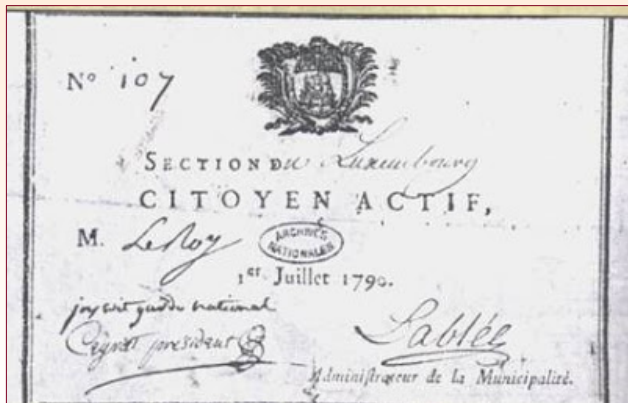 N° 107
SECTION DU Luxembourg
CITOYEN ACTIF,
M. LeRoy
ARCHIVES
NATIONALES
1er Juillet 1790.
garde national
président
Lablée
Administrateur de la Municipalité.